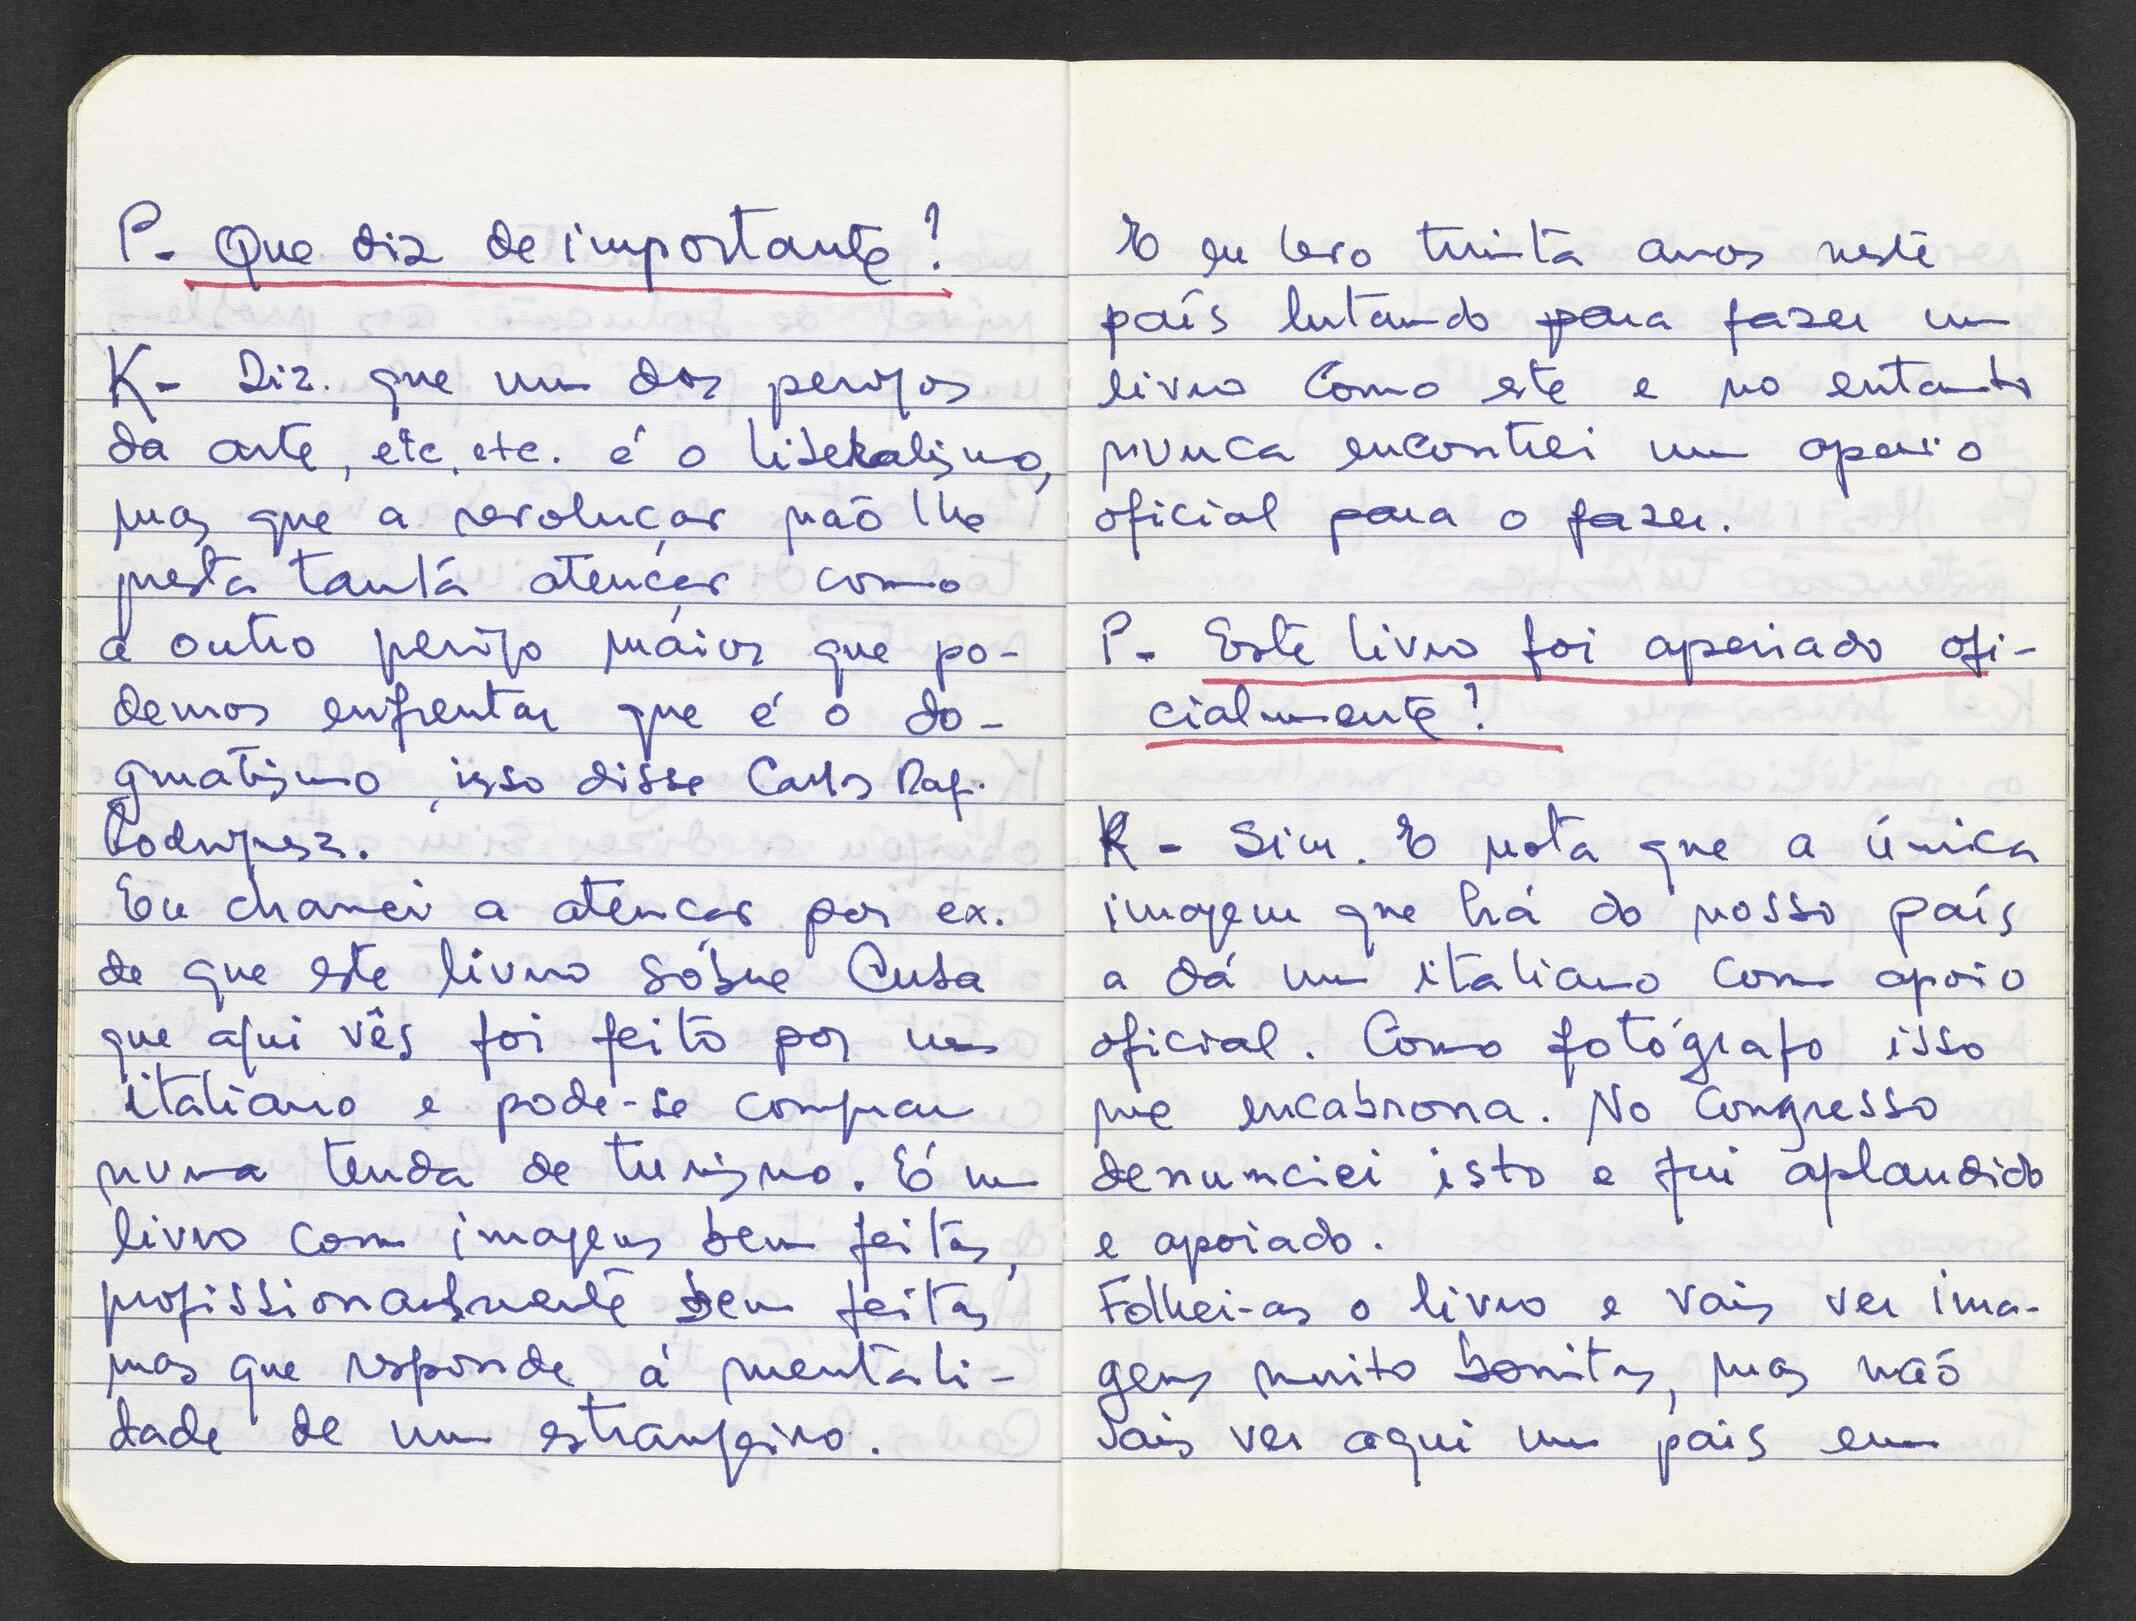 P- Que diz de importante?
K- Diz. que um dos perigos
da arte, etc. etc. é o liberalismo,
mas que a revoluçar não lhe
presta tanta atençar como
a outro perigo máior que po-
demos enfrentar que é o do-
gmatismo, isso disse Carlos Raf.
Rodriguez.
Eu chamei a atencar por ex.
de que este livro sóbre Cuba
que aqui vês foi feito por um
italiano e pode-se comprar
numa tenda de turismo. É um
livro com imagens bem feitas,
profissionalmente bem feitas
mas que responde á mentali-
dade de um estrangeiro.
E eu levo trinta anos neste
país lutando para fazer um
livro como este e no entanto
nunca encontrei um apoio
oficial para o fazer.
P- Este livro foi apoiado ofi-
cialmente?
K- Sim. E nota que a única
imagem que há do nosso país
a dá um italiano com apoio
oficial. Como fotógrafo isso
me encabrona. No Congresso
denunciei isto e fui aplaudido
e apoiado.
Folhei-as o livro e vais ver ima-
gens muito bonitas, mas não
vais ver aqui um país em